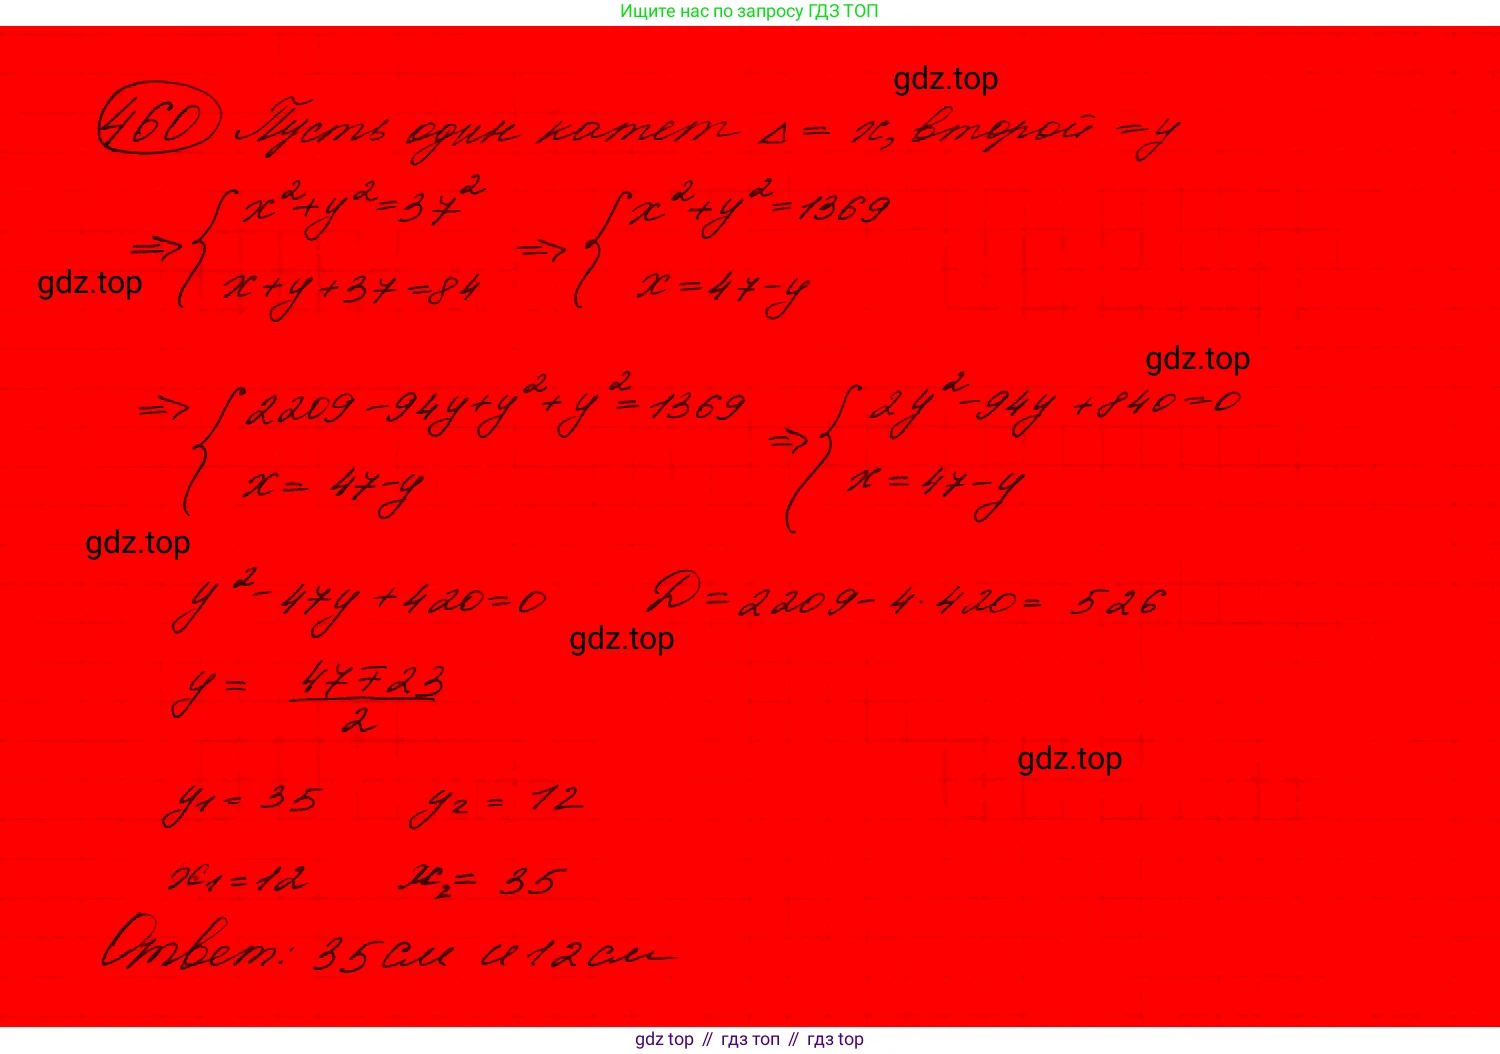 Ищите нас по запросу ГДЗ ТОП
gdz.top
460 Пусть один катет Δ = x, второй = y
⇒ { x²+y²=37² ⇒ { x²+y²=1369
x+y+37=84 x=47-y
gdz.top
gdz.top
⇒ { 2209-94y+y²+y²=1369 ⇒ { 2y²-94y+840=0
x=47-y x=47-y
gdz.top
y²-47y+420=0 D=2209-4·420= 526
gdz.top
y= (47∓23)/2
gdz.top
y₁=35 y₂=12
x₁=12 x₂=35
Ответ: 35см и 12см
gdz top // гдз топ // гдз top